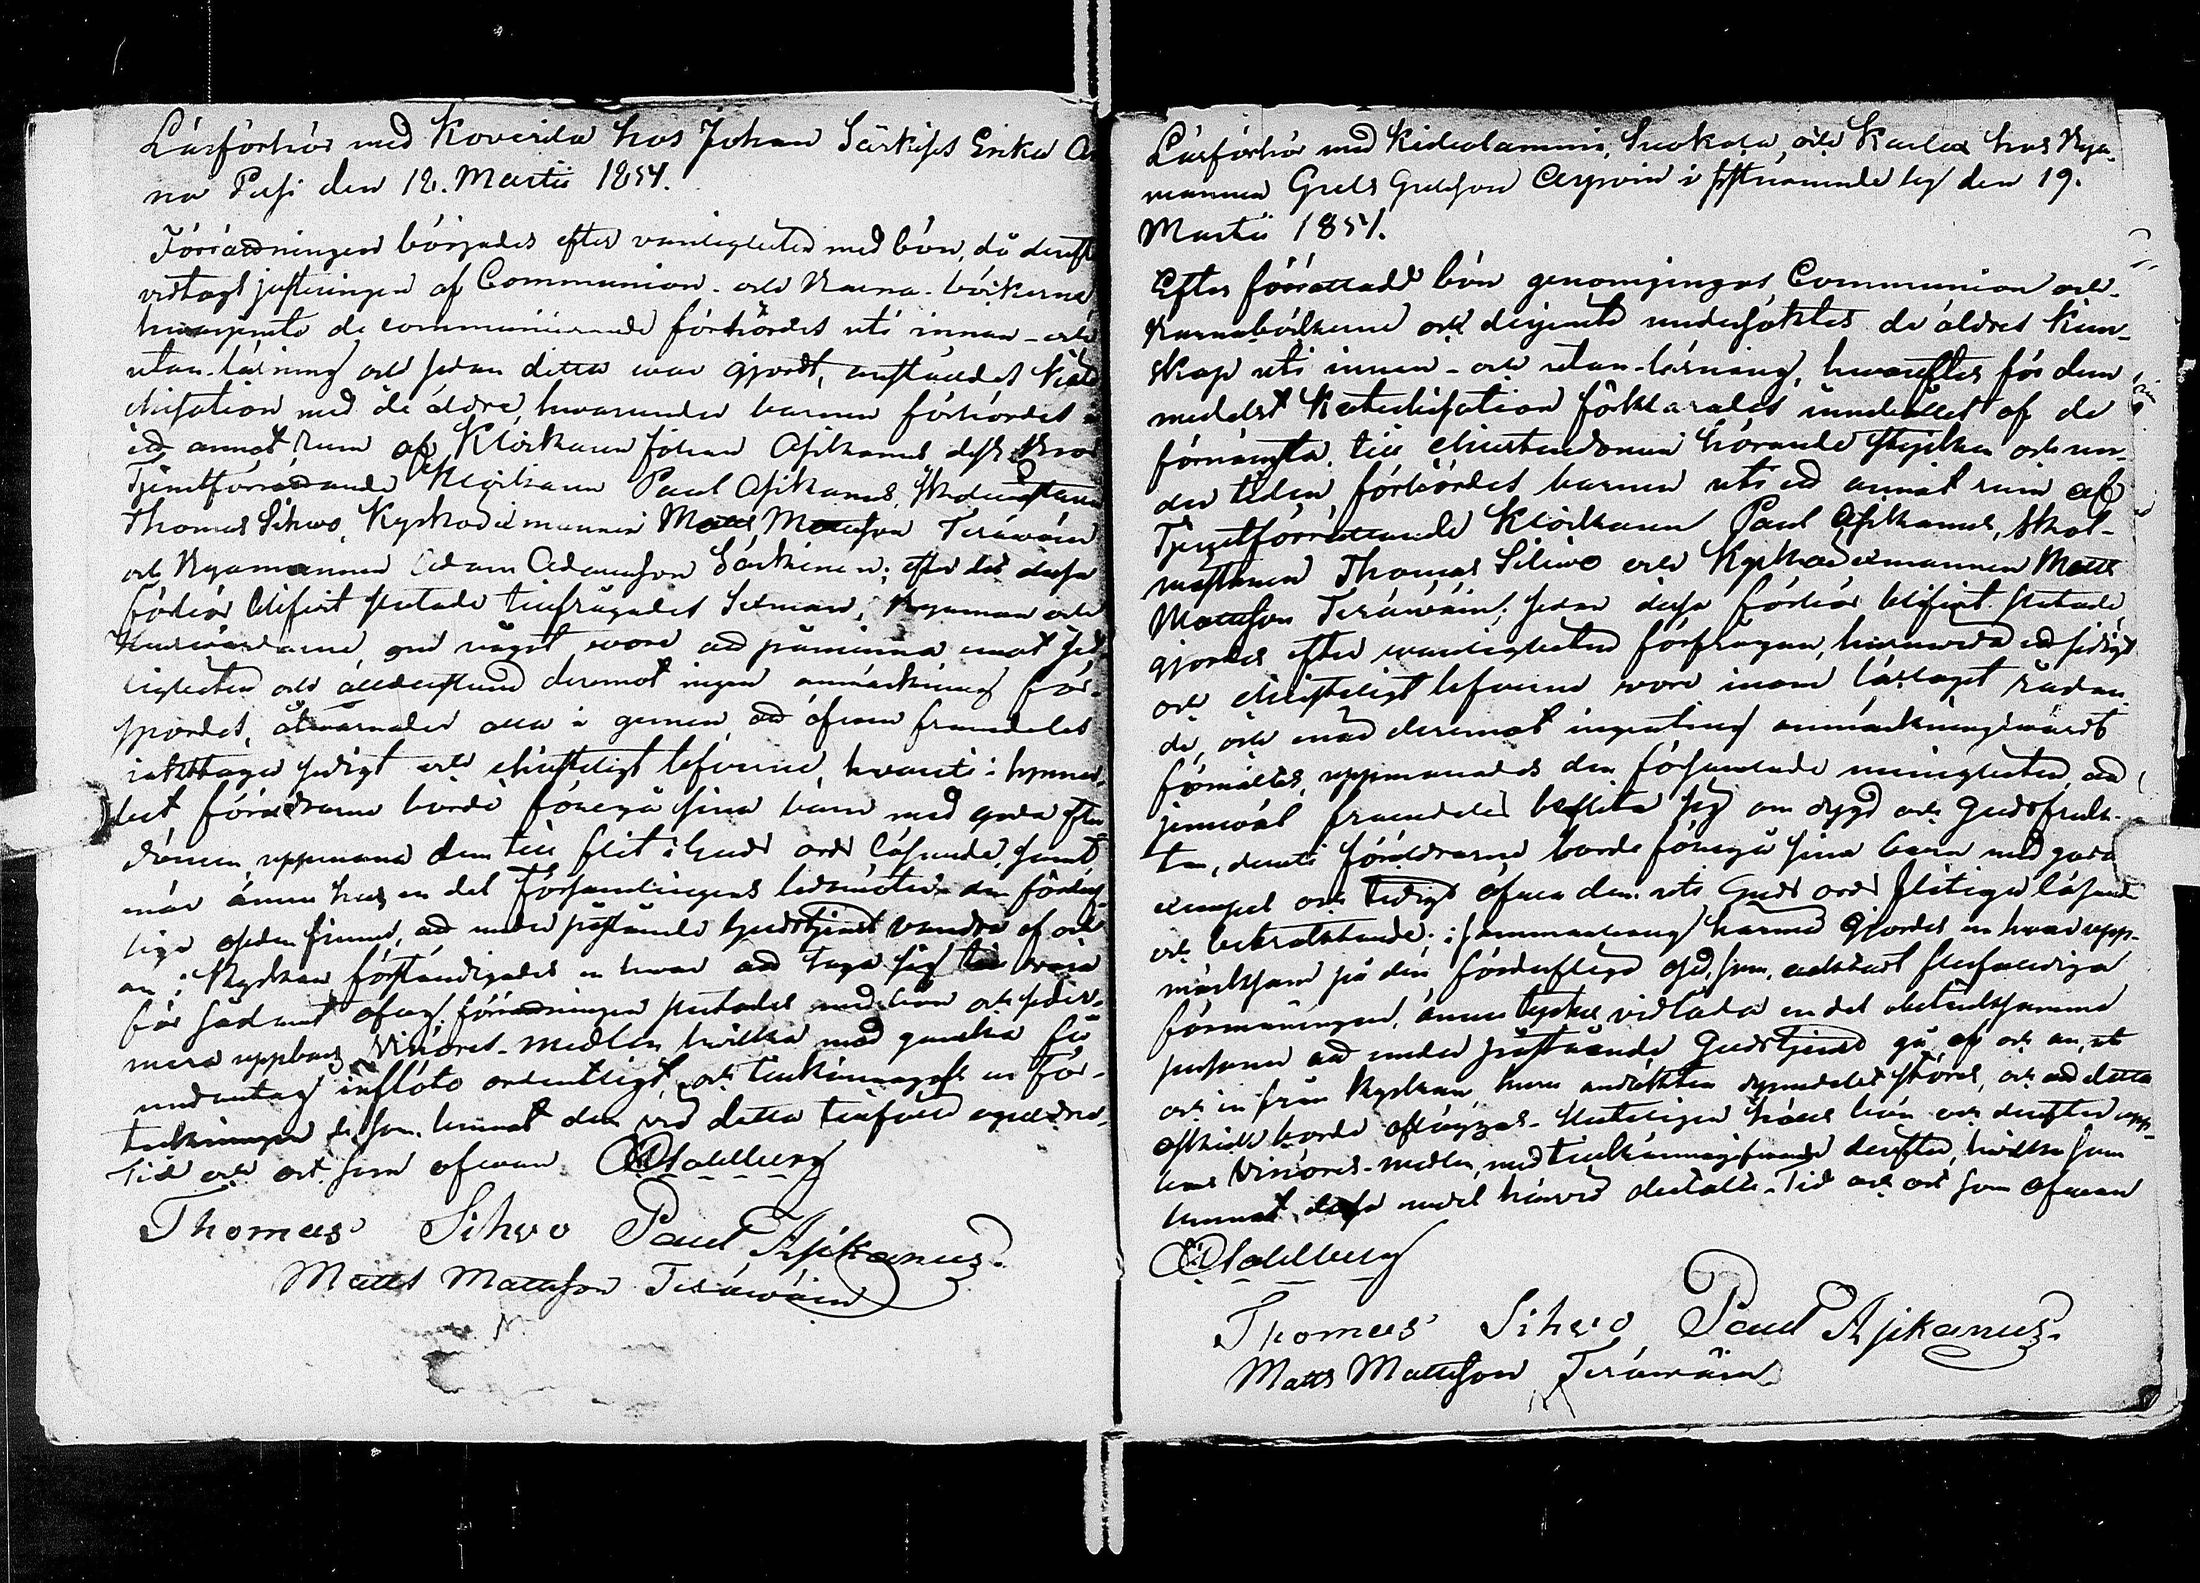 Läsförhör med Koverila hos Johan Särkises Enka An
na Pesi den 12. Martii 1854.
Förrättningen börjades efter vanligheten med bön, då dereft
vidtogs justeringen af Communion- och Barna-böckerne
hvarjemte de communicerande förhördes uti innan- och
utan-läsning och sedan detta var gjordt, anställdes Kate
chisation med de äldre, hvarunder barnen förhördes i
ett annat rum af Klockaren Johan Ajikanus dess Bror
Tjenstförrättande Klockaren Paul Ajikanus, Skolmästaren
Thomas Sihvo, Kyrkovärdmannen Matts Mattsson Teräwäin
och Byamannen Adam Adamsson Särkinen; efter det dessa
förhör blifvit slutade tillfrågades Sexman, Byaman och
Husvärdarne, om något vore att påminna emot sed
ligheten och allenstund deremot ingen anmärkning för-
spordes, åtvarnades alla i gemen, att äfven framdeles
iakttaga sedigt och christeligt lefverne, hvaruti i synner
het föräldrarne borde föregå sina barn med goda efter
dömen, uppmana dem till flit i Guds ords läsande, samt
när ännu hos en del Församlingens ledamöter den förderf-
lige oseden finnes, att under påstående Gudstjenst vandra af och
an i Kyrkan förständigades en hvar att taga sig till vara
för sådant ofog. förrättningen slutades med bön och seder-
mera uppbars Vinöres-medlen hvilka med ganska få
undantag inflöto ordentligt, och tillkännagafs en för-
teckningen de som lemnat den vid detta tillfälle
Tid och ort som ofwan. Stahlberg
Thomas Sihvo Paul Ajikanus.
Matts Mattsson Teräwäin
Läsförhör med Kidealammin, Suokala, och Karlea hos Bya-
mannen Grels Grelsson i sistnämnde by den 19.
Martii 1854.
Efter förrättadt bön genomgingos Communion och
Barnaböckerne och derjemte undersöktes de äldres kun-
skap uti innan- och utan-läsning, hwarefter för dem
medelst Katechisation förklarades innehållet af de
förnämsta till christendomen hörande stycken och un-
der tiden förhördes barnen uti ett annat rum af
Tjenstförrättande Klockaren Paul Ajikanus, Skol-
mästaren Thomas Sihwo och Kyrkovärdmannen Matts
Mattsson Teräwäin; sedan dessa förhör blifvit slutade
gjordes efter wanligheten förfrågan, huruwida ett sedigt
och christeligt lefverne wore inom läslaget rådan-
de, och enär deremot ingenting anmärkningswärdt
förmältes, uppmanades den församlade menigheten att
jemwäl framdeles beflita sig om dygd och Gudsfruk-
tan, deruti föräldrarne borde föregå sina barn med goda
exempel och tidigt öfwa dem uti Guds ords flitiga läsande
och betraktande; i sammanhang härmed gjordes en hvar upp-
märksam på den förderfliga osed, som, oaktadt flerfaldiga
förmaningar, ännu tyckes vidlåda en del obetänksamma
personer att under påstående Gudstjenst gå af och an, ut
och in från Kyrkan, hvars andakten synnerligt störes, och att detta
oskick borde afläggas. Slutligen hölls bön och derefter upp-
bars Vinöres-medlen, med tillkännagifwande derefter, hvilka som
lemnat dessa medel härvid Tid och ort som ofwan
Stahlberg
Thomas Sihvo Paul Ajikanus.
Matts Mattsson Teräwäin